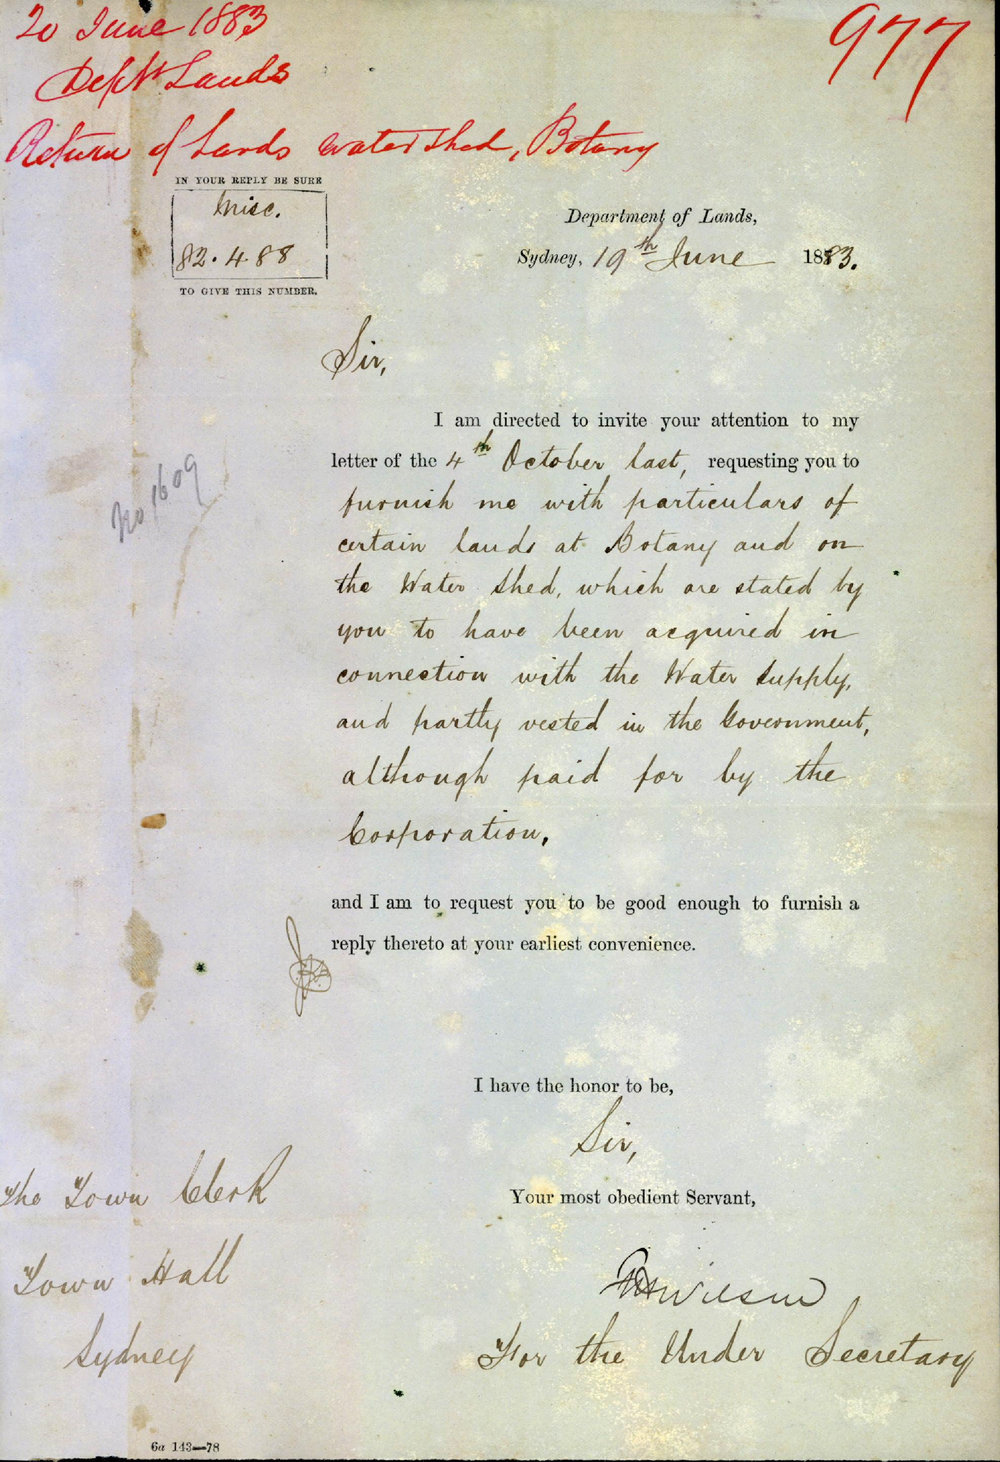 20 June 1883
977
Dept Lands
Return of Lands Watershed, Botany
IN YOUR REPLY BE SURE
Misc.
82.4.88
TO GIVE THIS NUMBER.
Department of Lands,
Sydney, 19th June 1883.
Sir,
No 1609
I am directed to invite your attention to my
letter of the 4th October last, requesting you to
furnish me with particulars of
certain lands at Botany and on
the Water Shed, which are stated by
you to have been acquired in
connection with the Water Supply,
and partly vested in the Government,
although paid for by the
Corporation,
and I am to request you to be good enough to furnish a
reply thereto at your earliest convenience.
I have the honor to be,
Sir,
Your most obedient Servant,
Wilson
For the Under Secretary
The Town Clerk
Town Hall
Sydney
6a 143—78